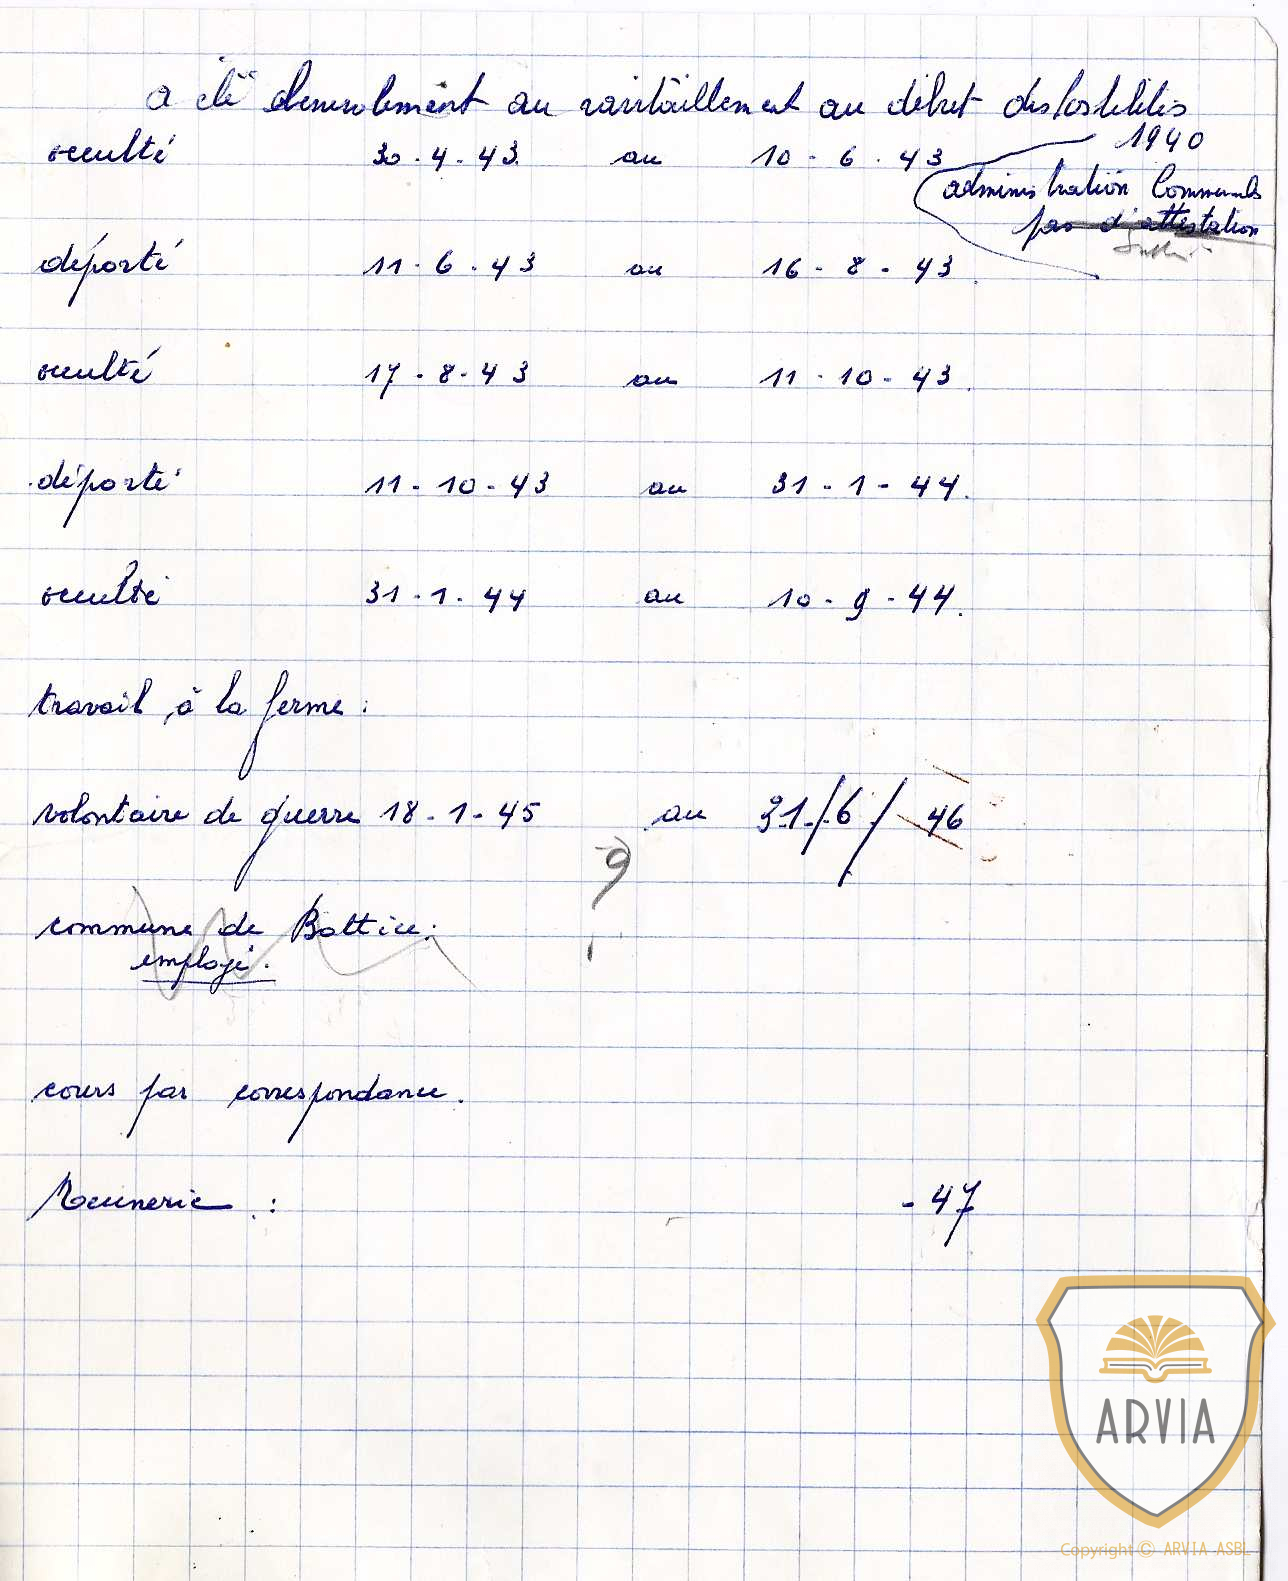 a été au ravitaillement au début des hostilités
1940
occulté 30-4-43. au 10-6-43
administration Communale
pas d'attestation
déporté 11-6-43 au 16-8-43.
occulté 17-8-43 au 11-10-43.
déporté 11-10-43 au 31-1-44.
occulté 31-1-44 au 10-9-44.
travail à la ferme :
volontaire de guerre 18-1-45 au 31/6/46
?
commune de Battice :
employé.
cours par correspondance.
Meunerie : -47
ARVIA
Copyright © ARVIA ASBL